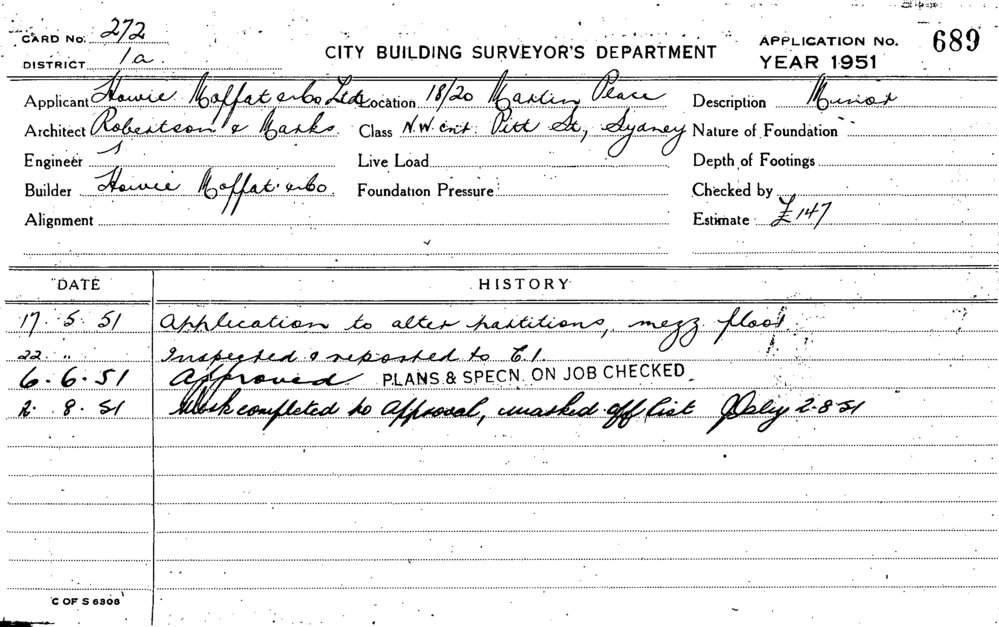 CARD No. 272
DISTRICT 1a
CITY BUILDING SURVEYOR'S DEPARTMENT
APPLICATION No. 689
YEAR 1951
Applicant Howie Moffat & Co Ltd Location 18/20 Martin Place Description Minor
Architect Robertson & Marks Class N.W. cnr. Pitt St, Sydney Nature of Foundation
Engineer Live Load Depth of Footings
Builder Howie Moffat & Co Foundation Pressure Checked by
Alignment Estimate £147
DATE HISTORY
17. 5. 51 Application to alter partitions, mezz floor
22 " Inspected & reported to C.I.
6. 6. 51 Approved. PLANS & SPECN. ON JOB CHECKED
2. 8. 51 Work completed to approval, marked off list 2-8-51
C OF S 6308